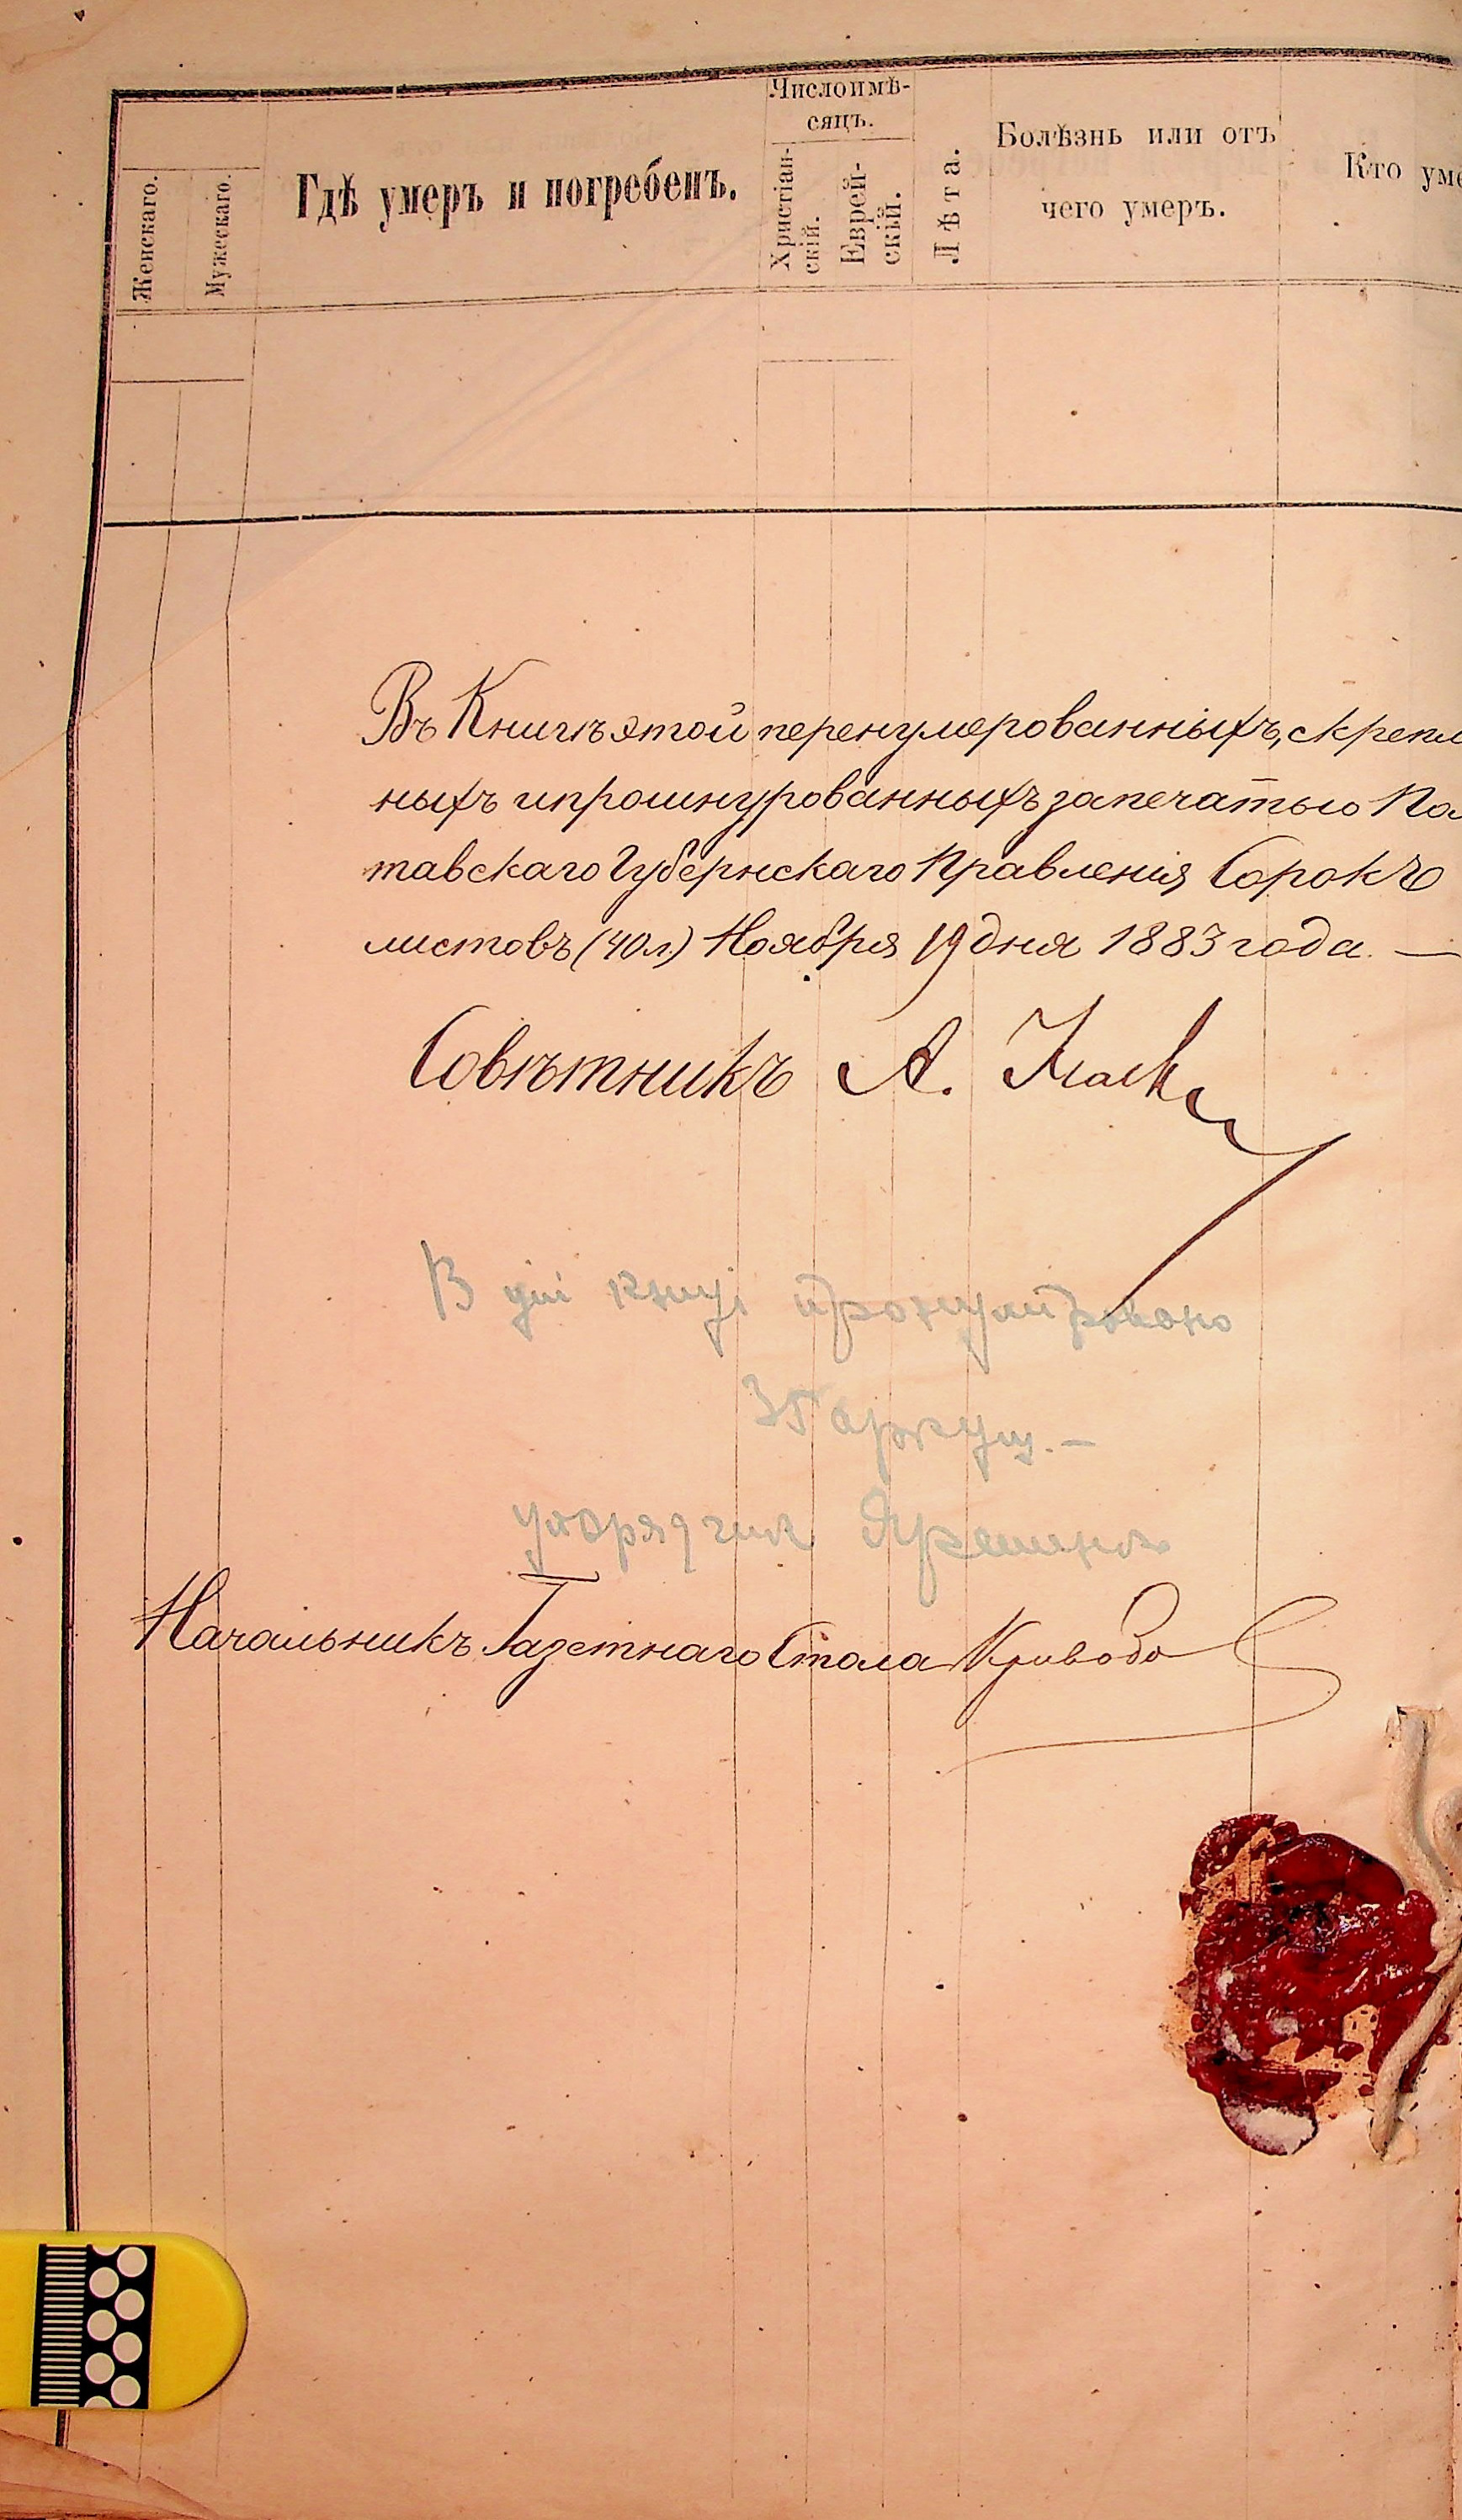 Числоимѣ-
сяцъ.
Женскаго.
Мужескаго.
Гдѣ умеръ и погребенъ.
Христіан-
скій.
Еврей-
скій.
Лѣта.
Болѣзнь или отъ
чего умеръ.
Кто уме
Въ Книгѣ этой перенумерованныхъ, скрепл
ныхъ и прошнурованныхъ за печатью Пол
тавскаго Губернскаго Правленія Сорокъ
листовъ (40 л.) Ноября 19 дня 1883 года. —
Совѣтникъ А.
В цій книзі пронумеровано
35 аркуш. —
упорядчик
Начальникъ Газетнаго Стола